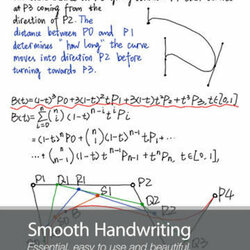 at P3 coming from the
direction of P2. The
distance between P0 and P1
determines "how long" the curve
moves into direction P2 before
turning towards P3.
B(t)=(1-t)³P0+3(1-t)²tP1+3(1-t)t²P2+t³P3, t∈[0,1]
B(t)=∑ⁿᵢ₌₀(ⁿᵢ)(1-t)ⁿ⁻ⁱtⁱPᵢ
=(1-t)ⁿP0+(ⁿ₁)(1-t)ⁿ⁻¹tP₁+...
...+(ⁿₙ₋₁)(1-t)tⁿ⁻¹Pₙ₋₁+tⁿPₙ, t∈[0,1],
P1 R1 Q1 P2
S1
P4
Q2
Smooth Handwriting
Essential, easy to use and beautiful